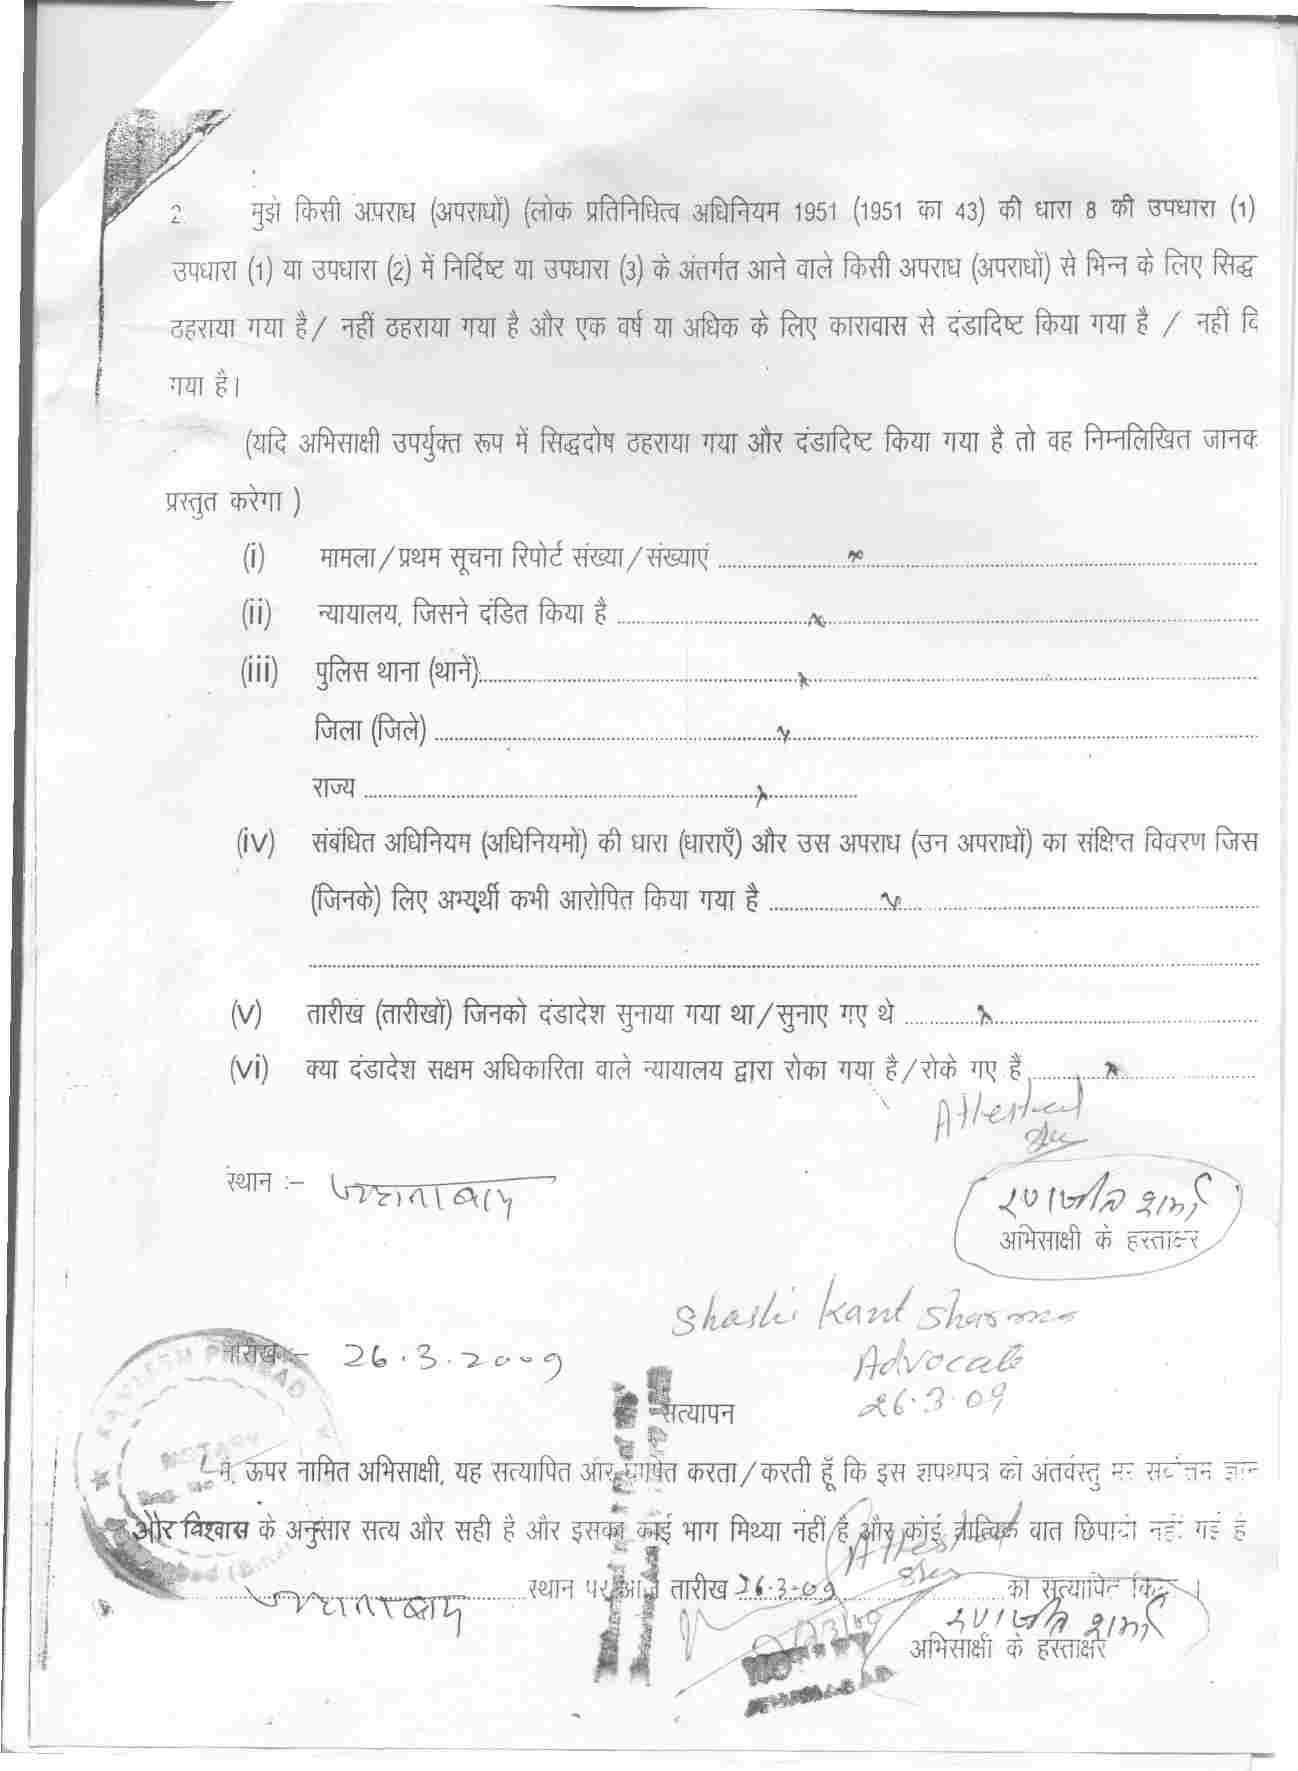 2. मुझे किसी अपराध (अपराधों) (लोक प्रतिनिधित्व अधिनियम 1951 (1951 का 43) की धारा 8 की उपधारा (1)
उपधारा (1) या उपधारा (2) में निर्दिष्ट या उपधारा (3) के अंतर्गत आने वाले किसी अपराध (अपराधों) से भिन्न के लिए सिद्ध
ठहराया गया है/ नहीं ठहराया गया है और एक वर्ष या अधिक के लिए कारावास से दंडादिष्ट किया गया है / नहीं कि
गया है।
(यदि अभिसाक्षी उपर्युक्त रूप में सिद्धदोष ठहराया गया और दंडादिष्ट किया गया है तो वह निम्नलिखित जानक
प्रस्तुत करेगा )
(i) मामला/प्रथम सूचना रिपोर्ट संख्या/संख्याएं x
(ii) न्यायालय, जिसने दंडित किया है x
(iii) पुलिस थाना (थानें) x
जिला (जिले) x
राज्य x
(iv) संबंधित अधिनियम (अधिनियमों) की धारा (धाराएँ) और उस अपराध (उन अपराधों) का संक्षिप्त विवरण जिस
(जिनके) लिए अभ्यर्थी कभी आरोपित किया गया है x
(v) तारीख (तारीखों) जिनको दंडादेश सुनाया गया था/सुनाए गए थे x
(vi) क्या दंडादेश सक्षम अधिकारिता वाले न्यायालय द्वारा रोका गया है/रोके गए हैं x
Attested
स्थान :- जहानाबाद
रणजीत शर्मा
अभिसाक्षी के हस्ताक्षर
Shashi Kant Sharma
तारीख :- 26.3.2009
Advocate
26.3.09
सत्यापन
मैं, ऊपर नामित अभिसाक्षी, यह सत्यापित और घोषित करता/करती हूँ कि इस शपथपत्र की अंतर्वस्तु मेरे सर्वोत्तम ज्ञान
और विश्वास के अनुसार सत्य और सही है और इसका कोई भाग मिथ्या नहीं है और कोई तात्विक बात छिपायी नहीं गई है
Attested
जहानाबाद स्थान पर आज तारीख 26.3.09 को सत्यापित किया ।
रणजीत शर्मा
अभिसाक्षी के हस्ताक्षर
NOTARY
JEHANABAD